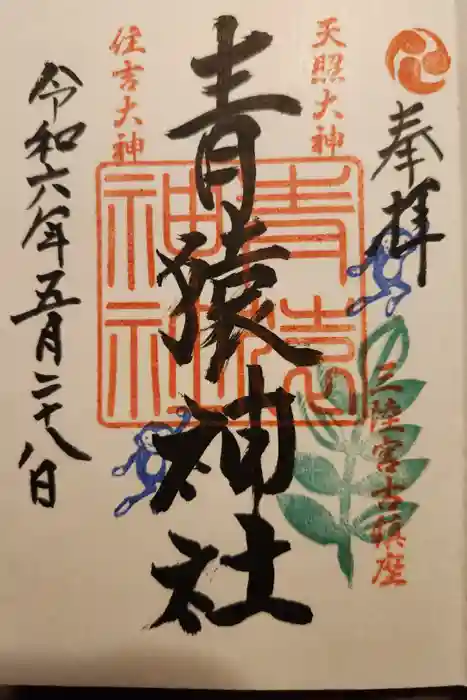 奉拝
天照大神
三陸宮古鎮座
青猿神社
住吉大神
令和六年五月二十八日
青猿
神社